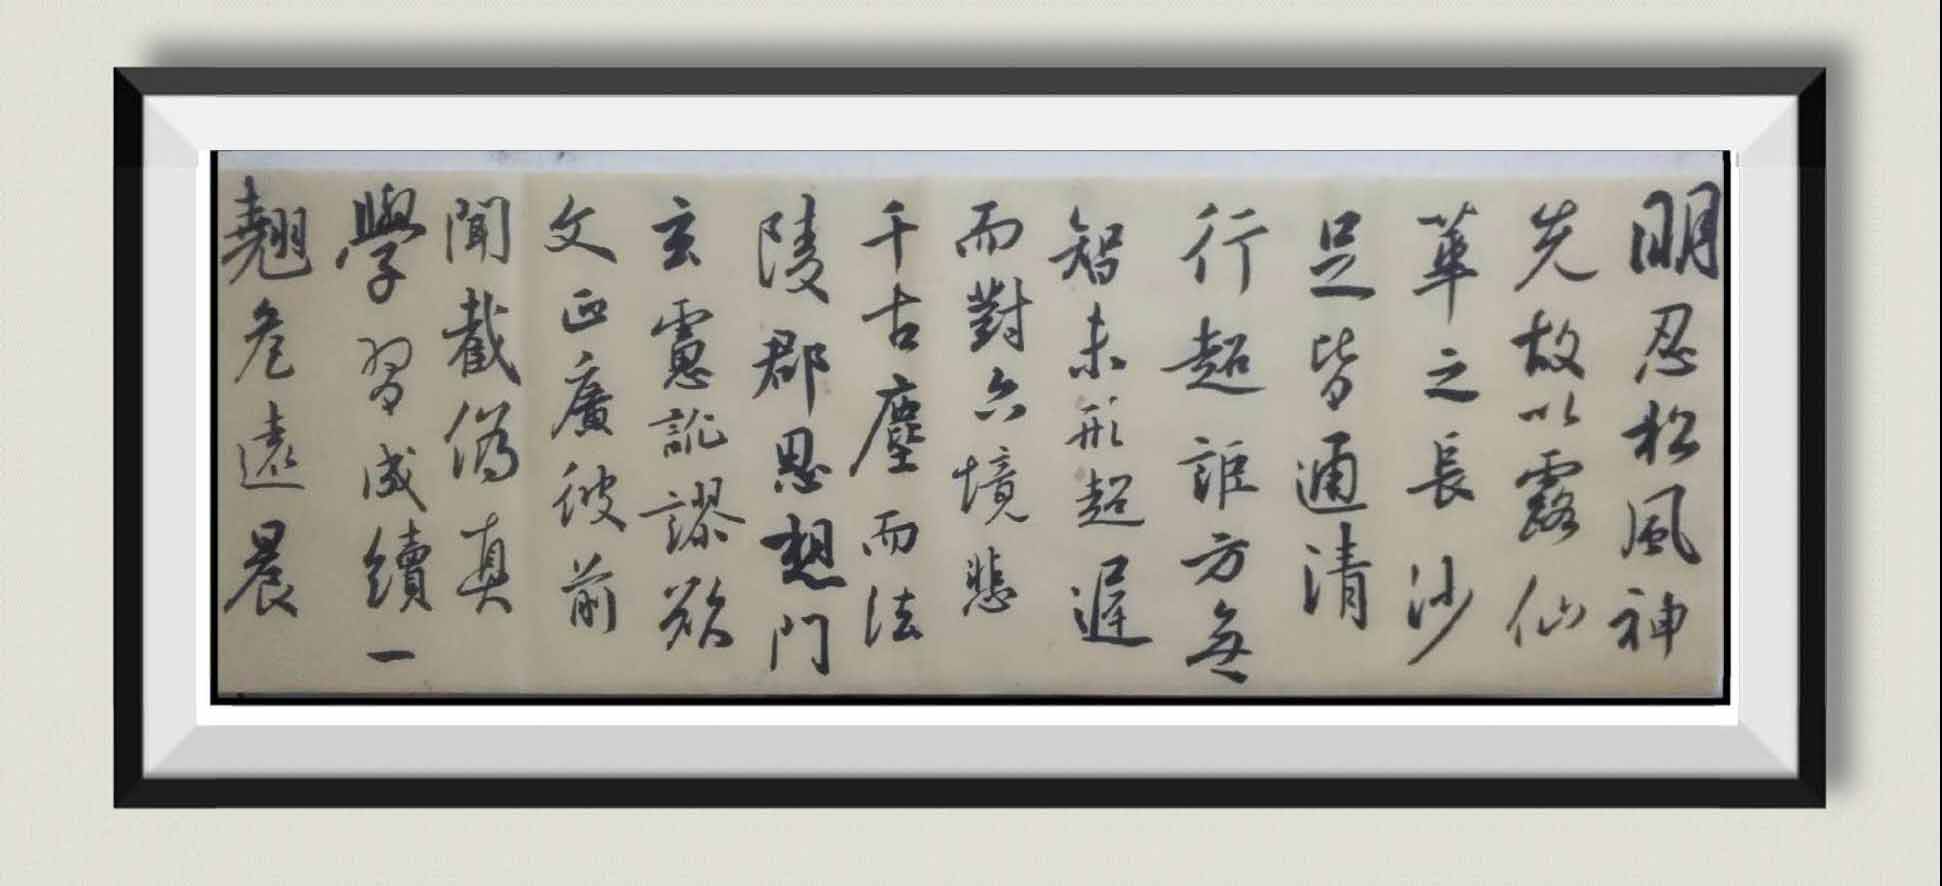 明忍松風神
先故以露仙
華之長沙
足皆通清
行超詎方無
智未形超遲
而對六境悲
千古塵而法
陵郡恩想門
玄慮訛謬欲
文正廣彼前
聞截偽真
學習成續一
翹危遠晨